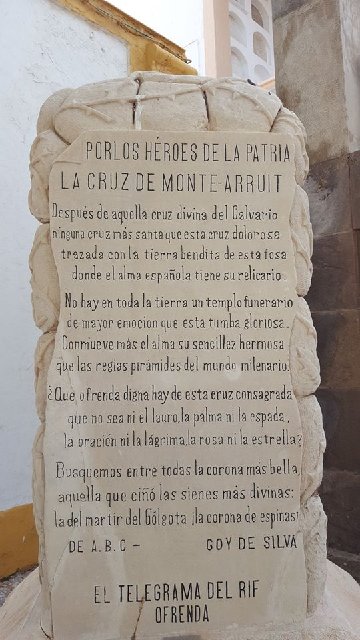 POR LOS HÉROES DE LA PATRIA
LA CRUZ DE MONTE-ARRUIT
Después de aquella cruz divina del Calvario
ninguna cruz más santa que esta cruz dolorosa
trezada con la tierra bendita de esta fosa
donde el alma española tiene su relicario.
No hay en toda la tierra un templo funerario
de mayor emoción que esta tumba gloriosa.
Conmueve más el alma su sencillez hermosa
que las regias pirámides del mundo milenario.
¿Que ofrenda digna hay de esta cruz consagrada
que no sea ni el lauro, la palma ni la espada,
la oración ni la lágrima, la rosa ni la estrella?
Busquemos entre todas la corona más bella,
aquella que ciñó las sienes más divinas:
la del martir del Gólgota ¡la corona de espinas!
DE A.B.C - GOY DE SILVA
EL TELEGRAMA DEL RIF
OFRENDA